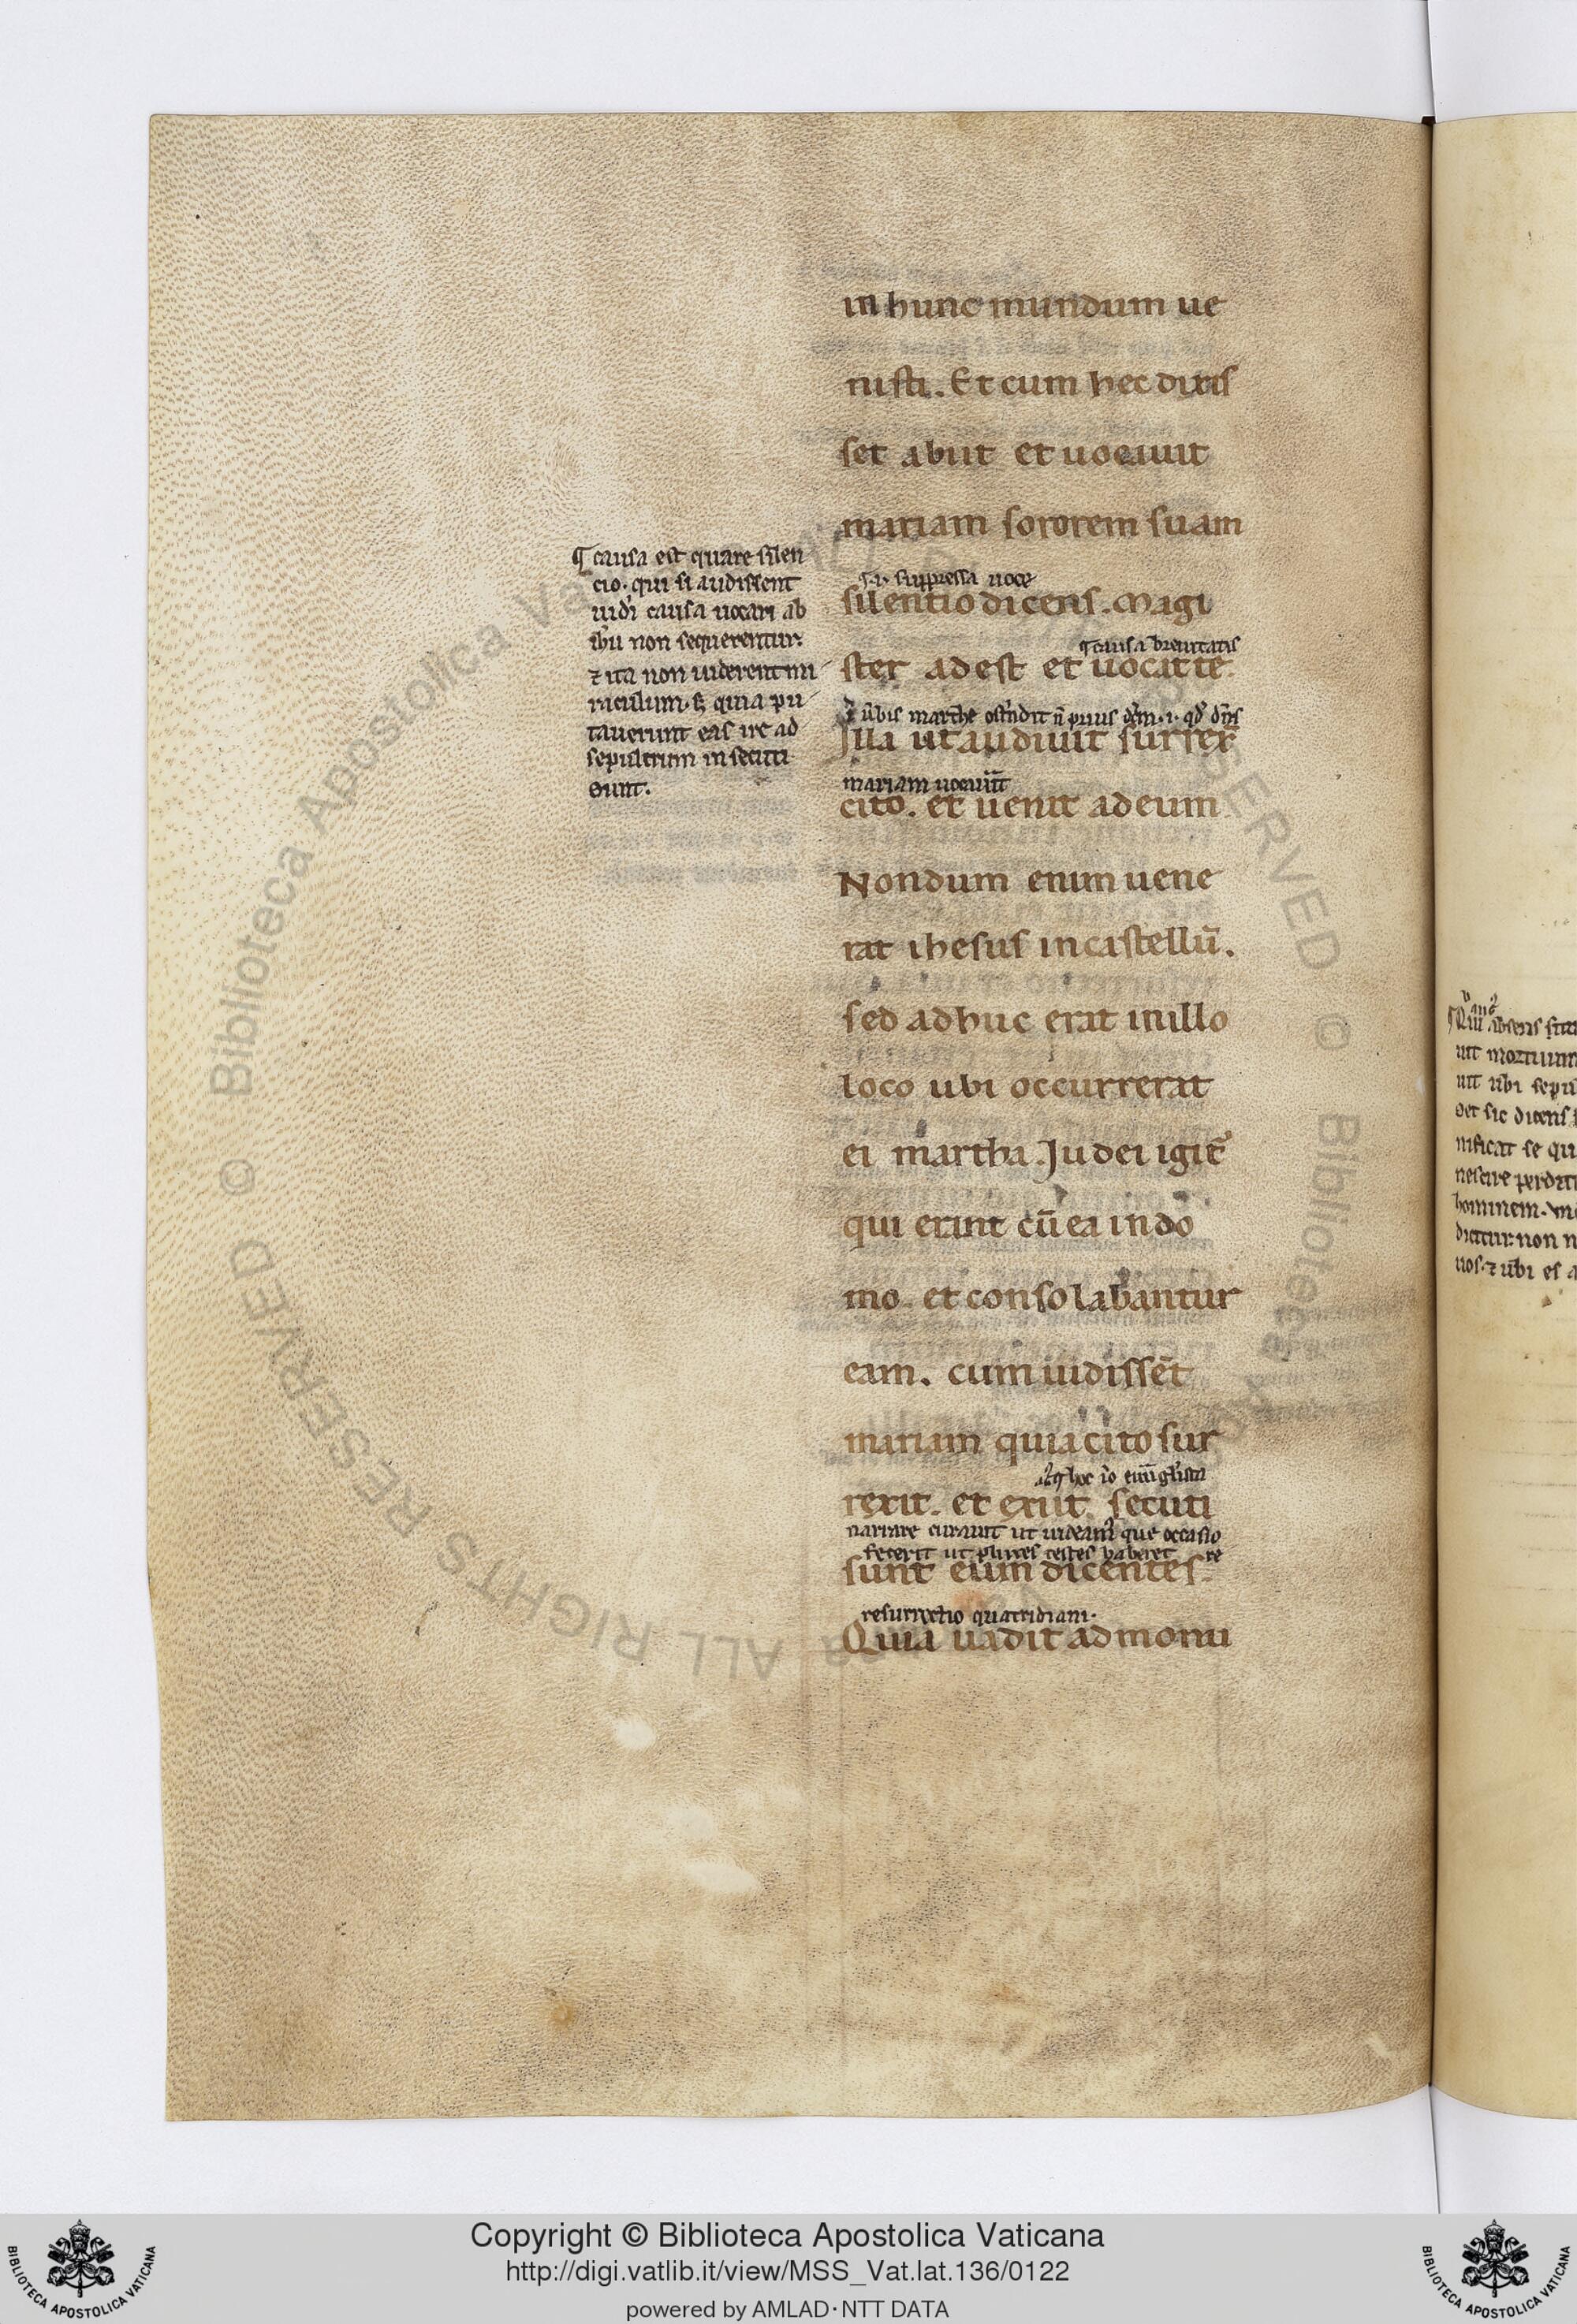 in hunc mundum ue
nisti. Et cum hec dixis
set abiit et uocauit
mariam sororem suam
.i. suppressa uoce
silentio dicens. Magi
causa breuitatis
ster adest et uocat te.
ūbis marthe ostendit n̄ prius .i. qd dn̄s
Illa ut audiuit surrex̄
mariam uocauit
cito. et uenit ad eum
Nondum enim uene
rat ihesus in castellū.
sed adhuc erat in illo
loco ubi occurrerat
ei martha. Judei igit᷑
qui erant cū ea in do
mo. et consolabantur
eam. cum uidissēt
mariam quia cito sur
hoc io
rexit. et exiit. secuti
narrare curauit ut uideam᷑ que occasio
fecerit ut plures testes haberet re
sunt eum dicentes.
resurrectio quatridiani.
Quia uadit ad monu
¶ causa est quare silen
cio. qui si audissent
iudei causa uocari ab
ihu non sequerentur.
⁊ ita non uiderent mi
raculum. s; quia pu
tauerunt eas ire ad
sepulcrum in secuti
sunt.
Qui absens fu
uit mortuum
uit ūbi sepu
det sic dicens
nificat se qu
nescire perditi
hominem.
dicitur non n
uos. ⁊ ūbi es a
Copyright © Biblioteca Apostolica Vaticana
http://digi.vatlib.it/view/MSS_Vat.lat.136/0122
powered by AMLAD·NTT DATA
BIBLIOTECA APOSTOLICA VATICANA
BIBLIOTECA APOSTOLICA VATICANA